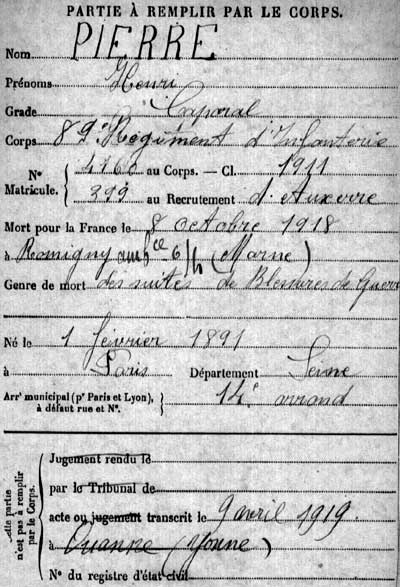 PARTIE À REMPLIR PAR LE CORPS.
Nom PIERRE
Prénoms Henri
Grade Caporal
Corps 89e Régiment d'Infanterie
No 4166 au Corps. — Cl. 1911
Matricule. 399 au Recrutement d'Auxerre
Mort pour la France le 8 octobre 1918
à Romigny ambce 6/ (Marne)
Genre de mort des suites de Blessures de Guerre
Né le 1 février 1891
à Paris Département Seine
Arrt municipal (pr Paris et Lyon), 14e arrond
à défaut rue et No.
Cette partie n'est pas à remplir par le Corps.
Jugement rendu le
par le Tribunal de
acte ou jugement transcrit le 9 avril 1919
à Ouanne (Yonne)
No du registre d'état civil